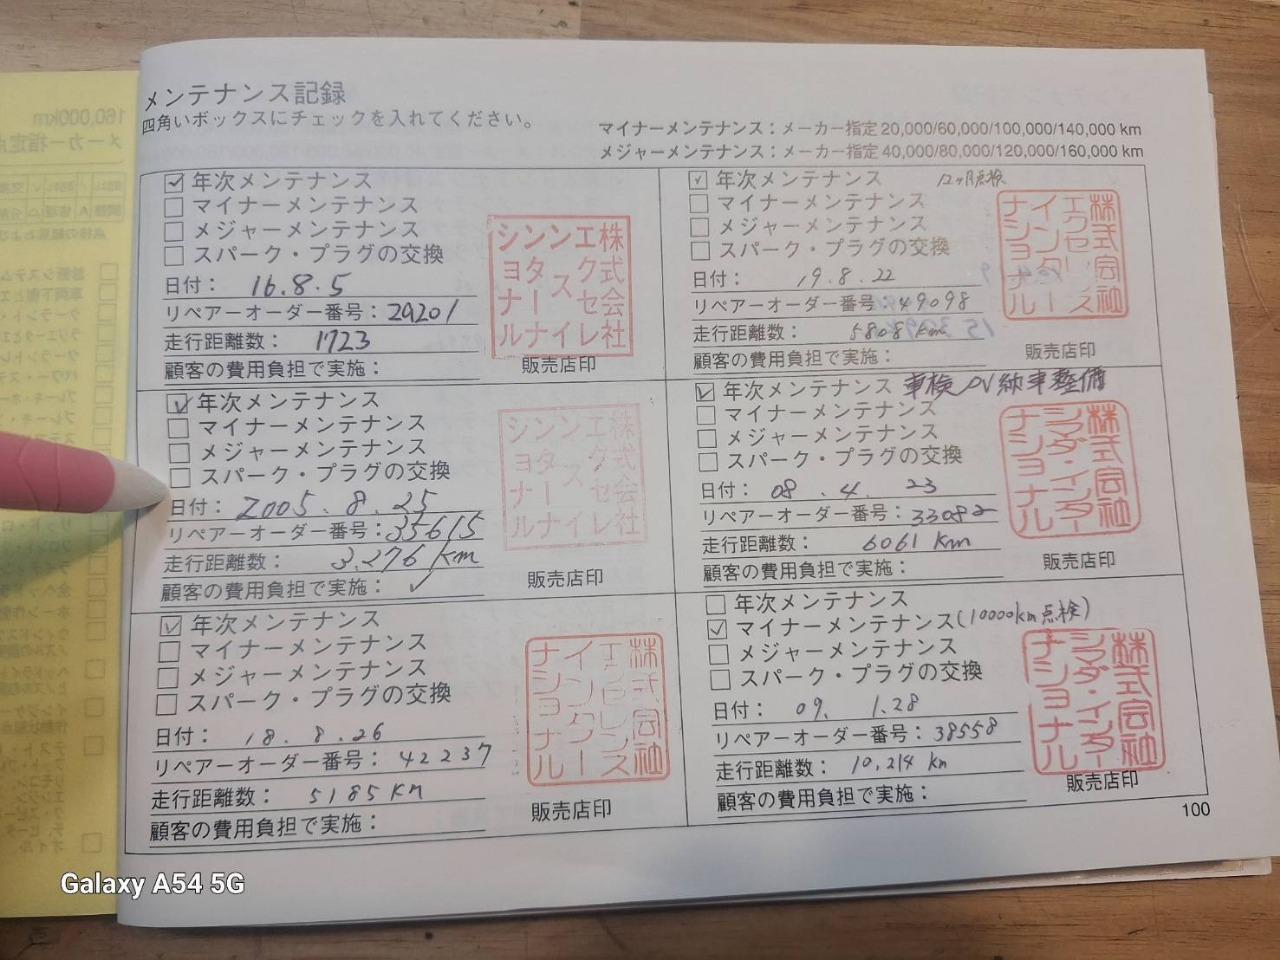 メンテナンス記録
四角いボックスにチェックを入れてください。
マイナーメンテナンス：メーカー指定 20,000/60,000/100,000/140,000 km
メジャーメンテナンス：メーカー指定 40,000/80,000/120,000/160,000 km
年次メンテナンス
マイナーメンテナンス
メジャーメンテナンス
スパーク・プラグの交換
日付： 16.8.5
リペアーオーダー番号： 29201
走行距離数： 1723
顧客の費用負担で実施：
株式会社エクセレンスインターナショナル
販売店印
年次メンテナンス
マイナーメンテナンス
メジャーメンテナンス
スパーク・プラグの交換
日付： 2005.8.25
リペアーオーダー番号： 35615
走行距離数： 3,276 km
顧客の費用負担で実施： ✓
販売店印
年次メンテナンス
マイナーメンテナンス
メジャーメンテナンス
スパーク・プラグの交換
日付： 18.8.26
リペアーオーダー番号： 42237
走行距離数： 5185 km
顧客の費用負担で実施：
販売店印
年次メンテナンス 12ヶ月点検
マイナーメンテナンス
メジャーメンテナンス
スパーク・プラグの交換
日付： 19.8.22
リペアーオーダー番号： 49098
走行距離数： 5808 km
顧客の費用負担で実施：
販売店印
年次メンテナンス 車検 納車整備
マイナーメンテナンス
メジャーメンテナンス
スパーク・プラグの交換
日付： 08.4.23
リペアーオーダー番号： 33082
走行距離数： 6061 km
顧客の費用負担で実施：
株式会社シマダ・インターナショナル
販売店印
年次メンテナンス
マイナーメンテナンス(10000km点検)
メジャーメンテナンス
スパーク・プラグの交換
日付： 09.1.28
リペアーオーダー番号： 38558
走行距離数： 10,214 km
顧客の費用負担で実施：
株式会社シマダ・インターナショナル
販売店印
100
Galaxy A54 5G